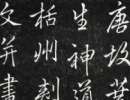 唐故葉
生神道
栝州刻
文并書